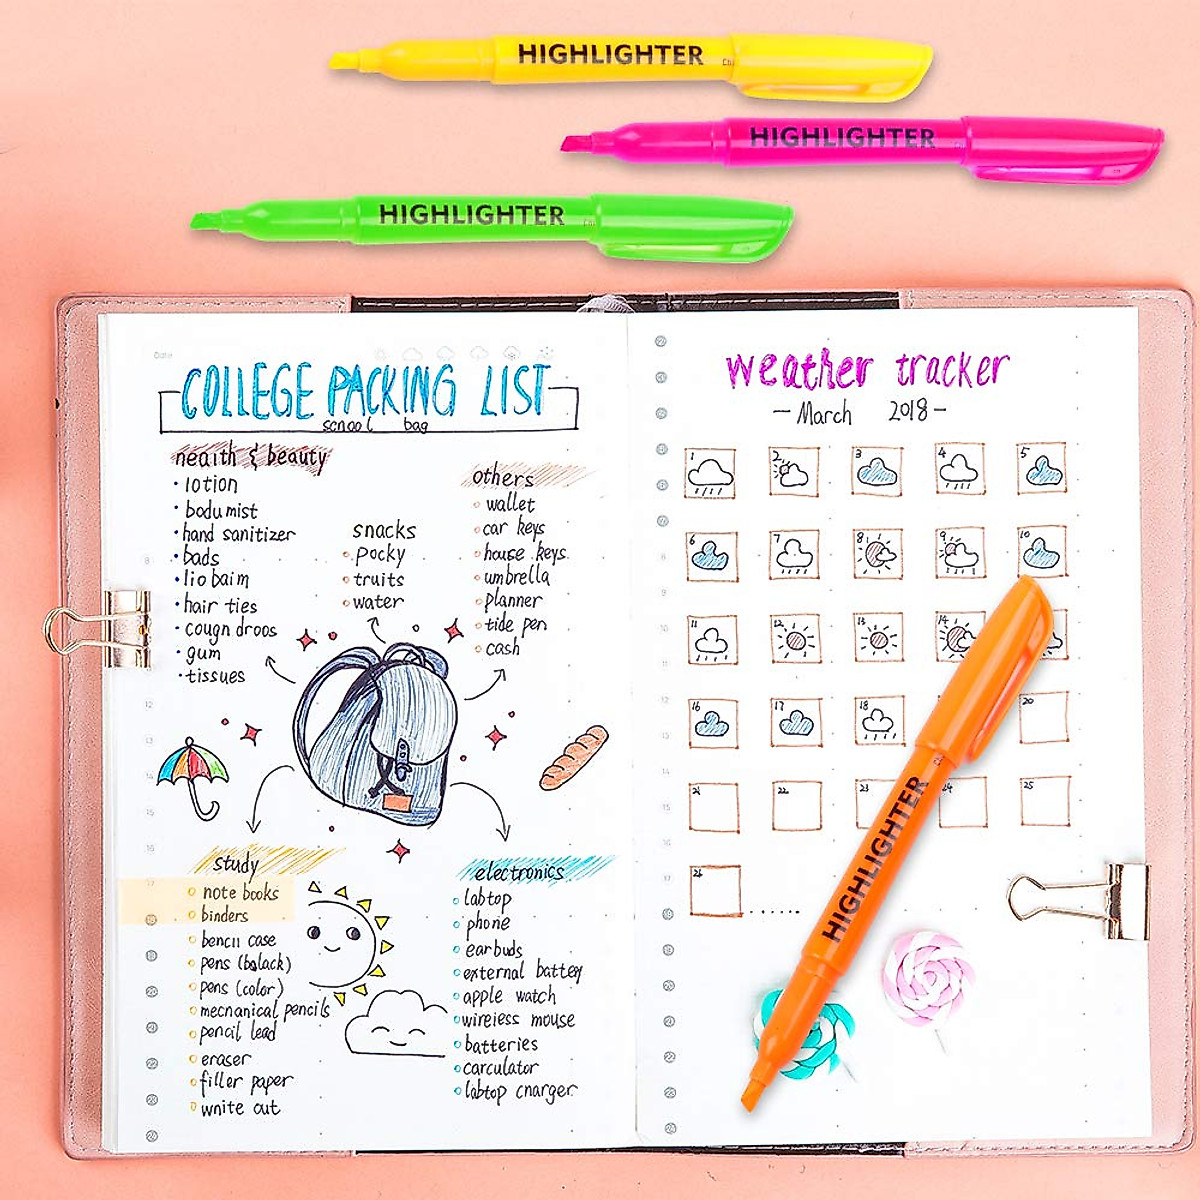 HIGHLIGHTER
HIGHLIGHTER
HIGHLIGHTER
COLLEGE PACKING LIST
school bag
health & beauty
• lotion
• bodumist
• hand sanitizer
• bads
• lio baim
• hair ties
• cougn droos
• gum
• tissues
snacks
pocky
truits
water
others
wallet
car keys
house keys
umbrella
planner
tide pen
cash
study
note books
binders
bencil case
pens (balack)
pens (color)
mecnanical pencils
pencil lead
eraser
filler paper
wnite out
electronics
labtop
phone
earbuds
external battey
apple watch
wireiess mouse
batteries
carculator
labtop cnarger
Weather tracker
- March 2018 -
1 2 3 4 5
6 7 8 9 10
11 12 13 14
16 17 18 20
21 22 23 24 25
26
HIGHLIGHTER